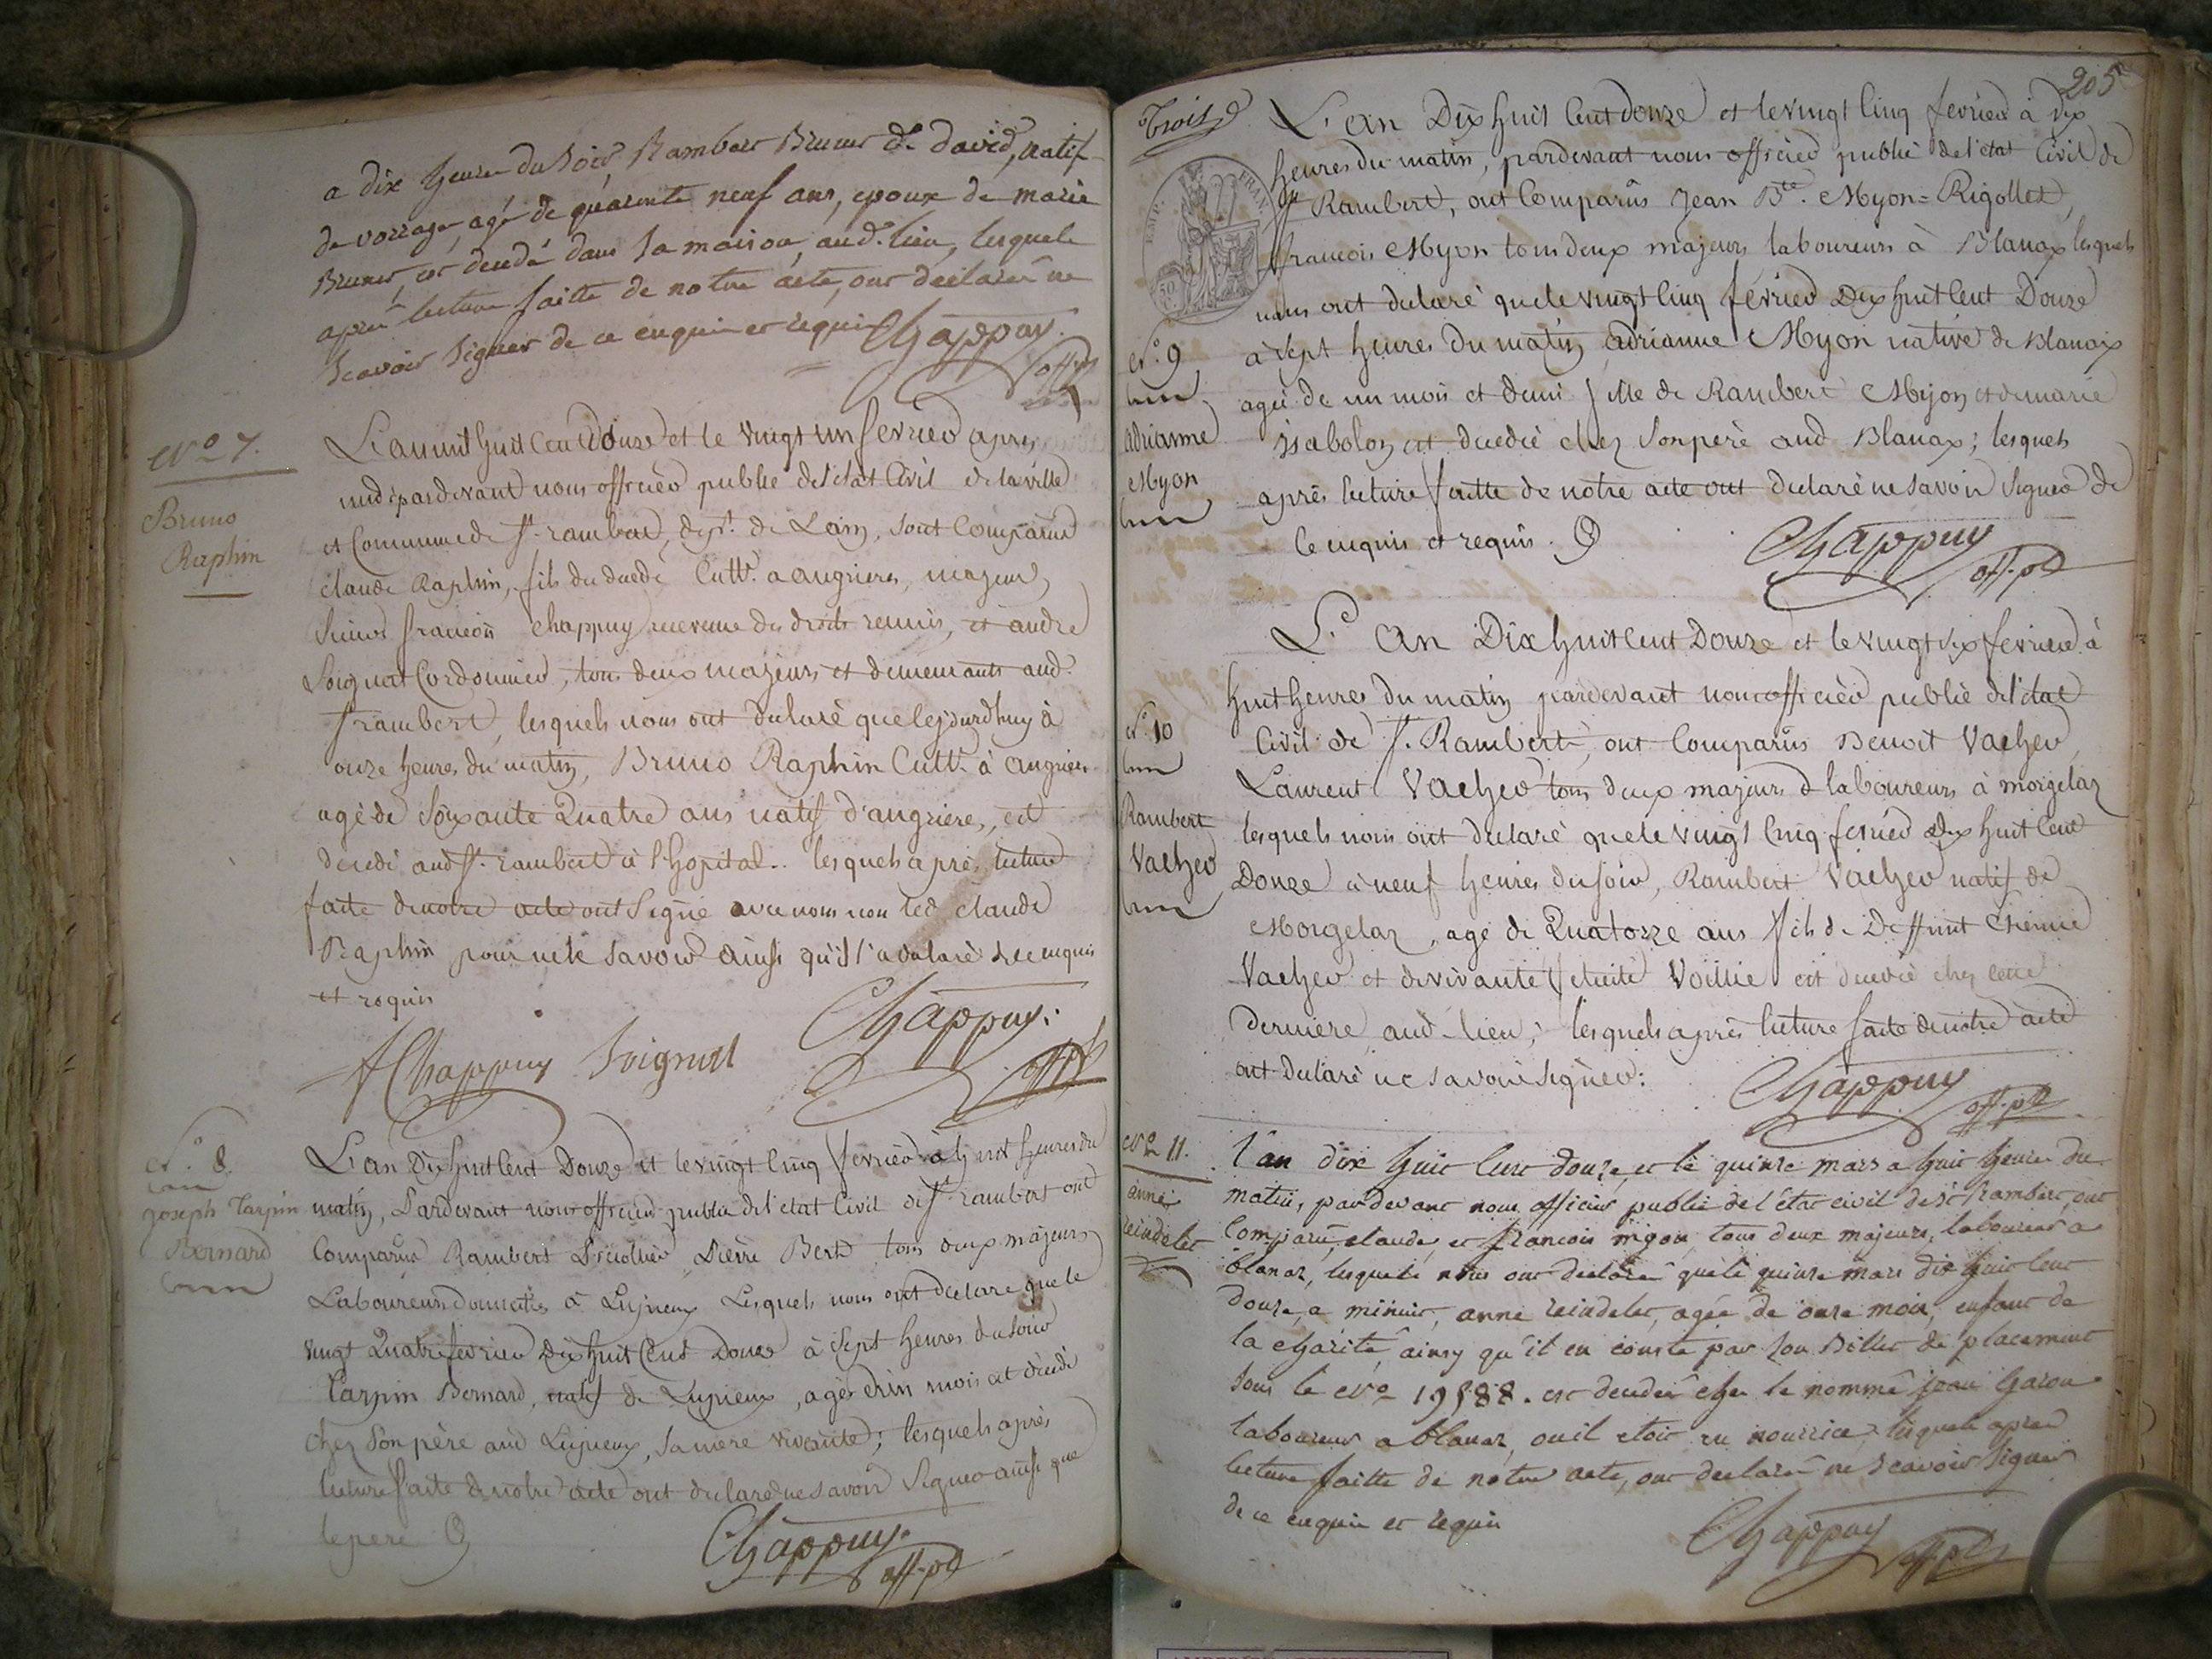 a dix heures du soir, Rambert Brunet dit david, natif
de vorrage, agé de quarante neuf ans, epoux de marie
Brunet, est decedé dans sa maison, aud. lieu, lesquels
après lecture faitte de notre acte, ont declaré ne
scavoir signer de ce enquis et requis Chappuy
off. pb
N° 7.
Bruno
Raphin
L'an mil huit cent Douze et le vingt un fevrier apres
midi pardevant nous officier public de l'etat Civil de la ville
et Commune de St. rambert, dept. de Lain, sont Comparus
claude Raphin, fils du decedé Cultr. a angrieres, majeur,
Sieurs francois Chappuy receveur des droits reunis, et andre
Soignat Cordonnier, tous deux majeurs et demeurants aud.
St rambert, lesquels nous ont declaré que cejourdhuy à
onze heures du matin, Bruno Raphin Cultr. à angrieres
agé de Soixante Quatre ans natif d'angrieres, est
decedé aud St. rambert à l'hopital. lesquels après lecture
faite de notre acte ont Signé avec nous non led. claude
Raphin pour ne le savoir ainsi qu'il l'a declaré de ce enquis
et requis
fChappuy Soignat Chappuy.
off. pb
N°. 8.
joseph Tarpin
Bernard
L'an Dix huit Cent Douze et le vingt Cinq fevrier à huit heures du
matin, Pardevant nous officier public de l'etat Civil de St rambert ont
Comparus Rambert Pierre Bert tous deux majeurs
Laboureurs domiciliés à Lupieux Lesquels nous ont declaré que le
vingt Quatre fevrier Dix huit Cent Douze à Sept heures du soir
Tarpin Bernard, natif de Lupieux, agé d'un mois est decedé
chez Son père aud Lupieux, sa mère vivante; lesquels après
lecture faite de notre acte ont declaré ne savoir Signer ainsi que
le pere
Chappuy.
off. pb
205
Trois
EMP. FRAN
50
N°. 9
adrianne
Myon
L'an Dix huit Cent Douze et le vingt Cinq fevrier à dix
heures du matin, pardevant nous officier public de l'etat Civil de
St Rambert, ont Comparûs Jean Bte. Myon=Rigollet,
francois Myon tous deux majeurs laboureurs à Blanax lesquels
nous ont declaré que le vingt Cinq février Dix huit Cent Douze
à Sept heures du matin adrianne Myon native de Blanax
agée de un mois et demi fille de Rambert Myon et de marie
est decedée chez Son pere aud Blanax; lesquels
après lecture faitte de notre acte ont declaré ne savoir Signer de
ce enquis et requis.
Chappuy
off. pb
N°. 10
Rambert
Vacher
L'an Dix huit Cent Douze et le vingt six fevrier à
huit heures du matin pardevant nous officier public de l'etat
Civil de St. Rambert, ont Comparûs Benoit Vacher,
Laurent Vacher tous deux majeurs & laboureurs à morgelaz
lesquels nous ont declaré que le vingt Cinq fevrier Dix huit Cent
Douze à neuf heures du soir, Rambert Vacher natif de
Morgelaz, agé de Quatorze ans fils de Deffunt Etienne
Vacher et de vivante est decedé chez cette
Derniere aud. lieu; lesquels après lecture faite de notre acte
ont declaré ne savoir signer:
Chappuy
off. pb
N° 11.
anne
reindelet
l'an dix huit cent douze, et le quinze mars a huit heures du
matin, pardevant nous officier public de l'etat civil de St Rambert, ont
Comparu, claude, et francois migon tous deux majeurs, laboureurs a
blanaz, lesquels nous ont declaré que le quinze mars dix huit cent
douze, a minuit, anne reindelet, agée de onze mois, enfant de
la charité ainsy qu'il en conste par son Billet de placement
sous le N° 19588. est decedée chez le nommé jean
laboureur a blanaz, ou il etoit en nourrice, lesquels après
lecture faitte de notre acte, ont declaré ne scavoir signer
de ce enquis et requis
Chappuy
off. pb